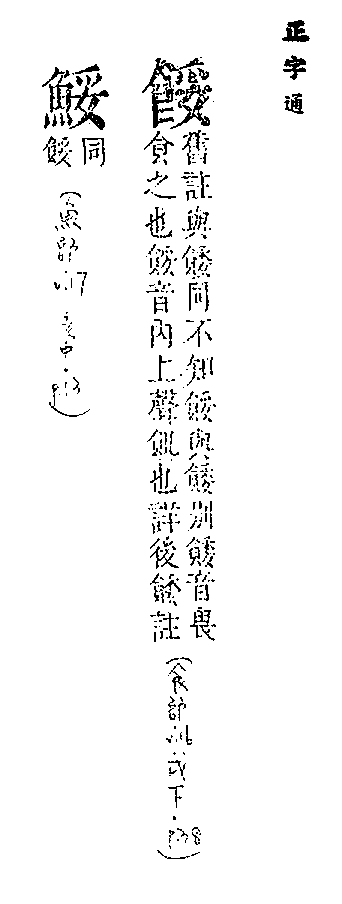 正字通
餒
舊註與餧同不知餒與餧別餧音畏
食之也餒音內上聲飢也詳後餧註
(食部.戌下.p38)
鮾
同
餒
(魚部 亥中.p.13)